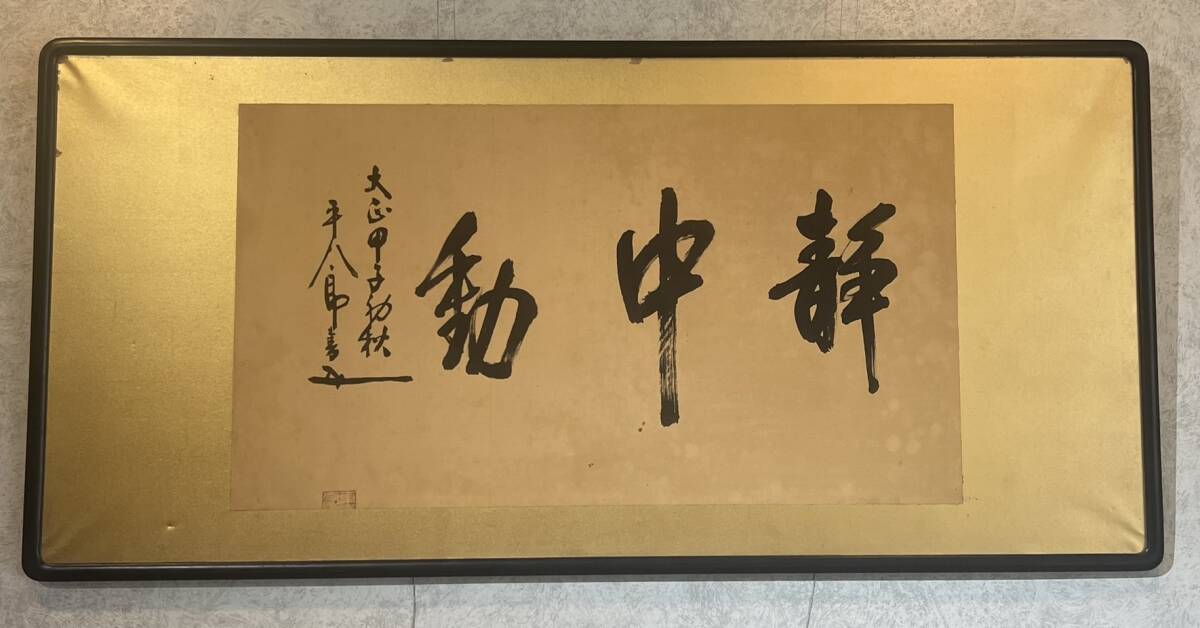 靜中動
大正甲子初秋
平八郎書